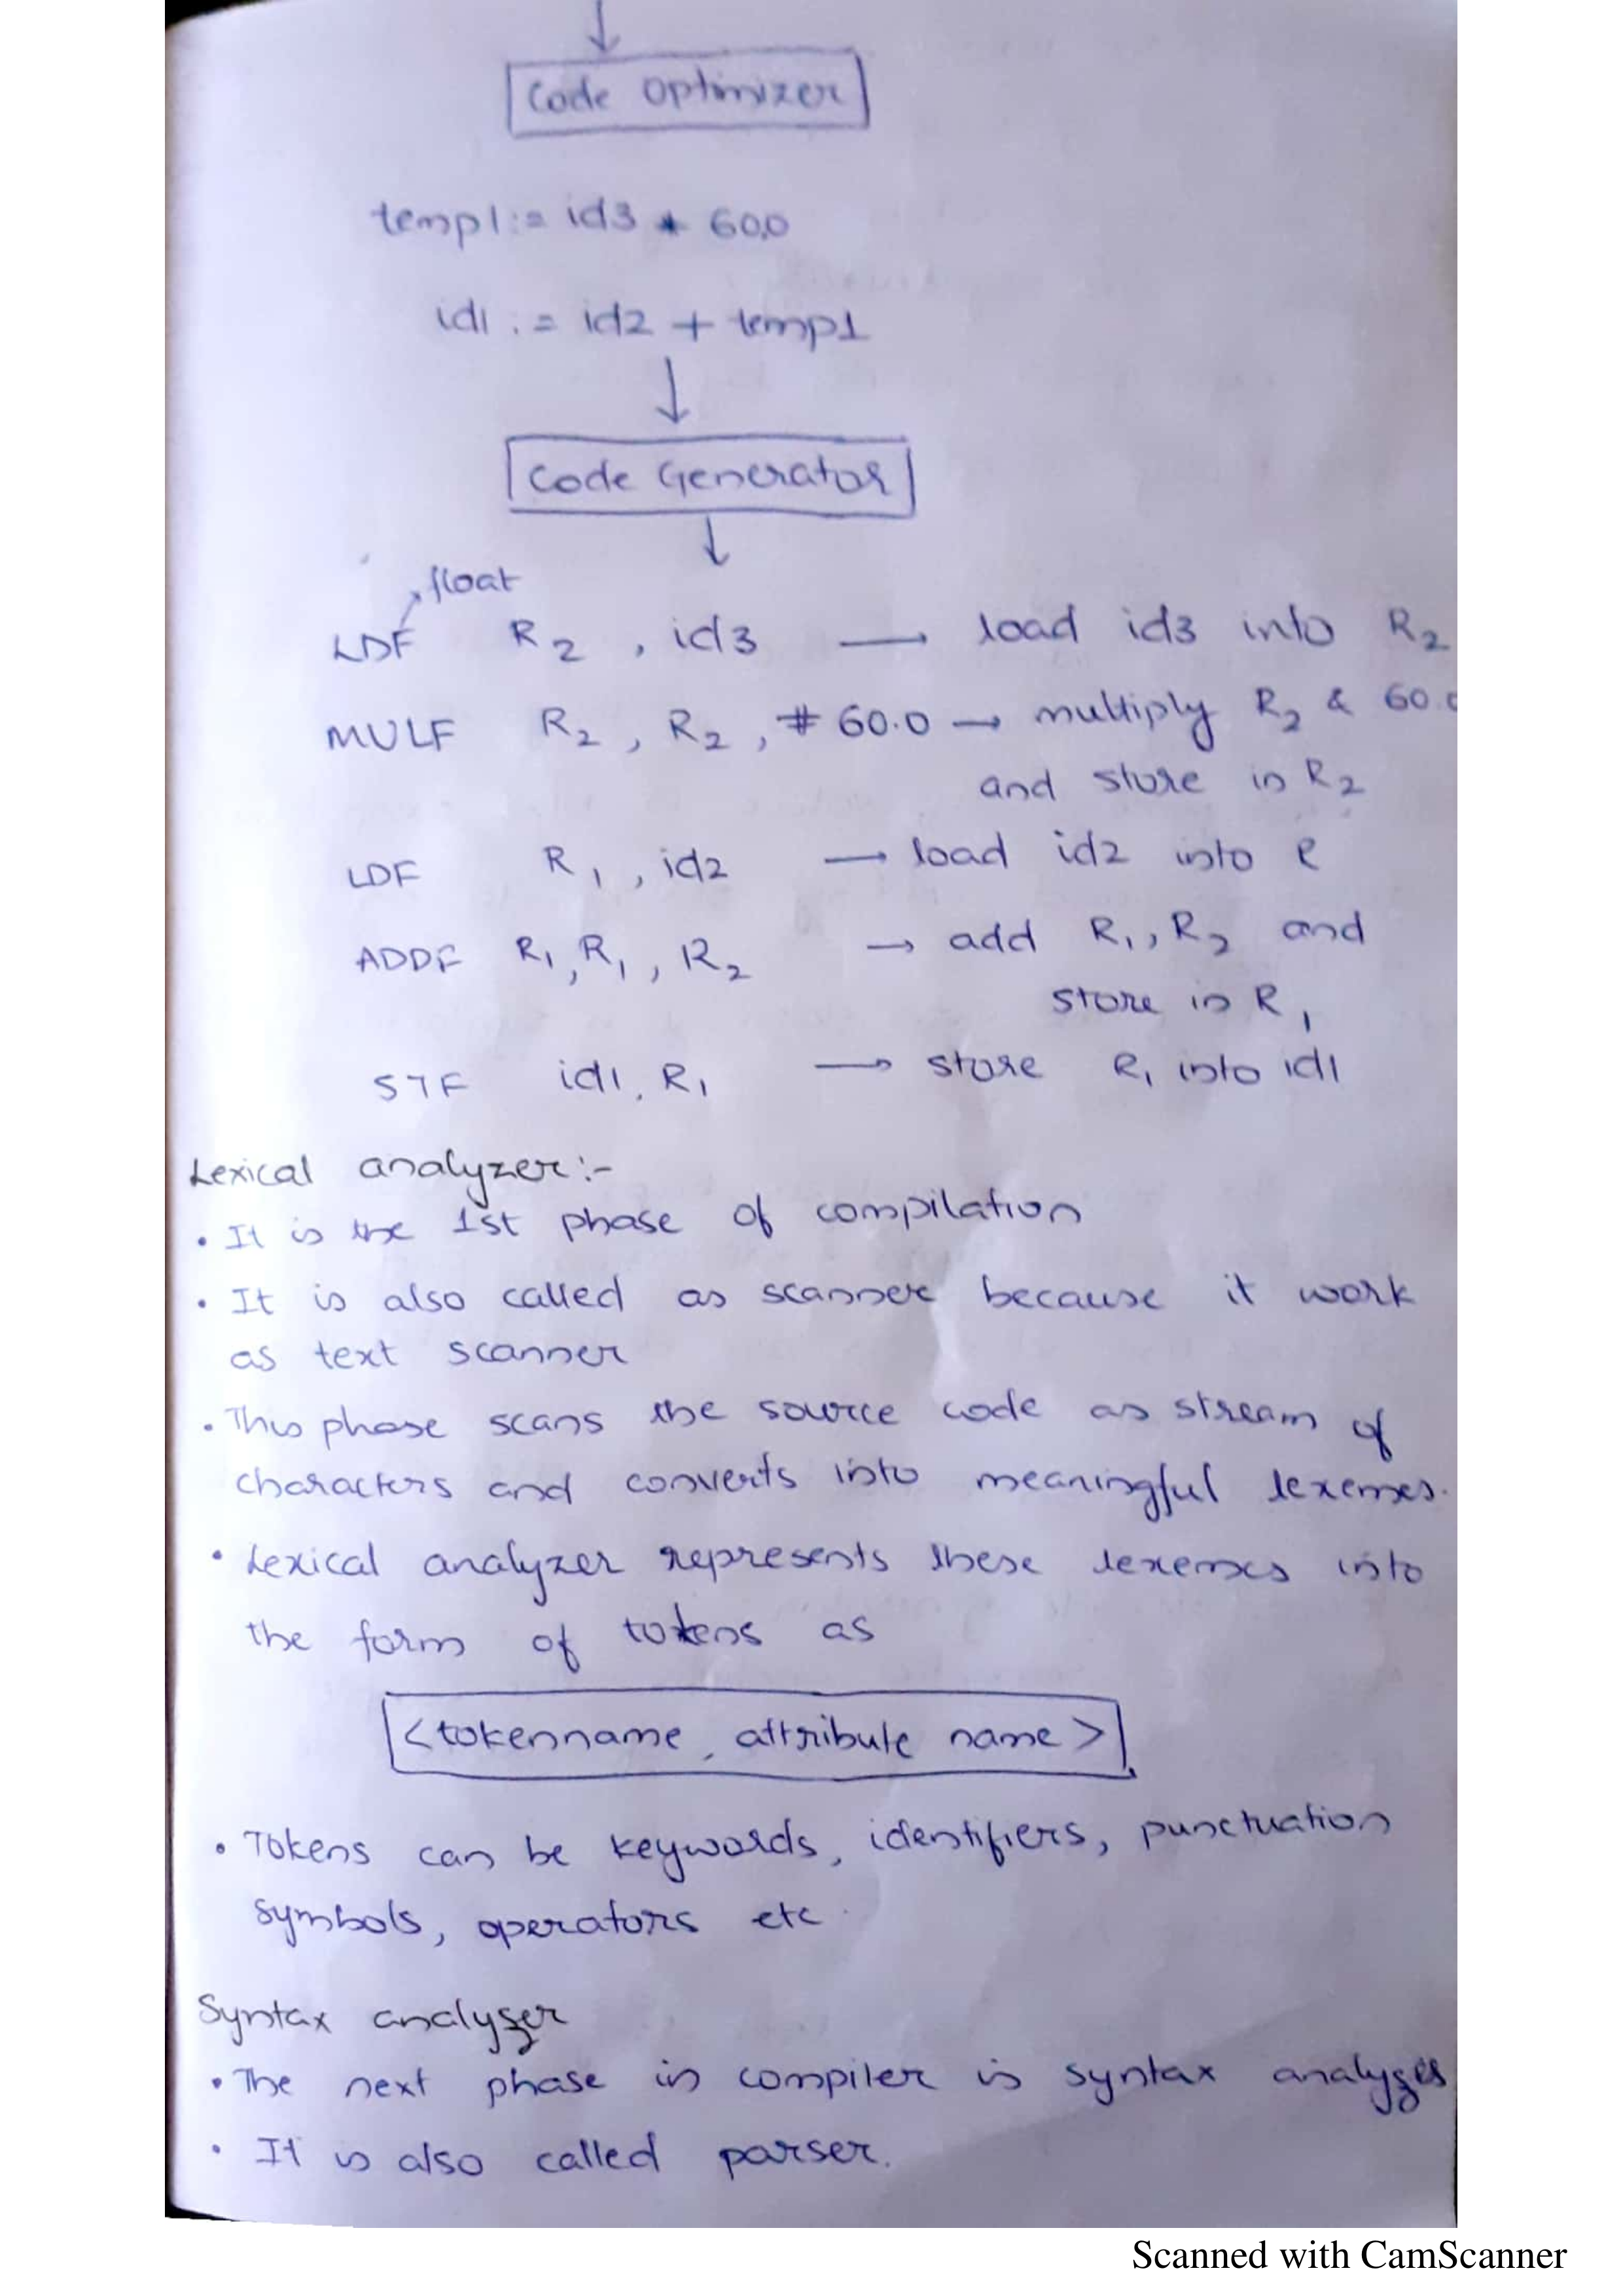 Code Optimizer
temp1:= id3 * 60.0
id1 := id2 + temp1
Code Generator
float
LDF R2 , id3 — load id3 into R2
MULF R2 , R2 , # 60.0 → multiply R2 & 60.0
and store in R2
LDF R1 , id2 → load id2 into R
ADDF R1 , R1 , R2 → add R1 , R2 and
store in R1
STF id1, R1 → store R1 into id1
Lexical analyzer:-
• It is the 1st phase of compilation
• It is also called as scanner because it work
as text scanner
• This phase scans the source code as stream of
characters and converts into meaningful lexemes.
• Lexical analyzer represents these lexemes into
the form of tokens as
<tokenname, attribute name>
• Tokens can be keywords, identifiers, punctuation
symbols, operators etc.
Syntax analyzer
• The next phase in compiler is syntax analyzer
• It is also called parser.
Scanned with CamScanner